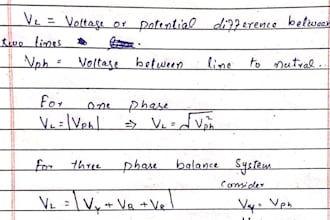 VL = Voltage or potential difference between
two lines
Vph = Voltage between line to nutral...
For one phase
VL = |Vph| ⇒ VL = √Vph²
For three phase balance System
Consider
VL = |VY + VB + VR| VY = Vph